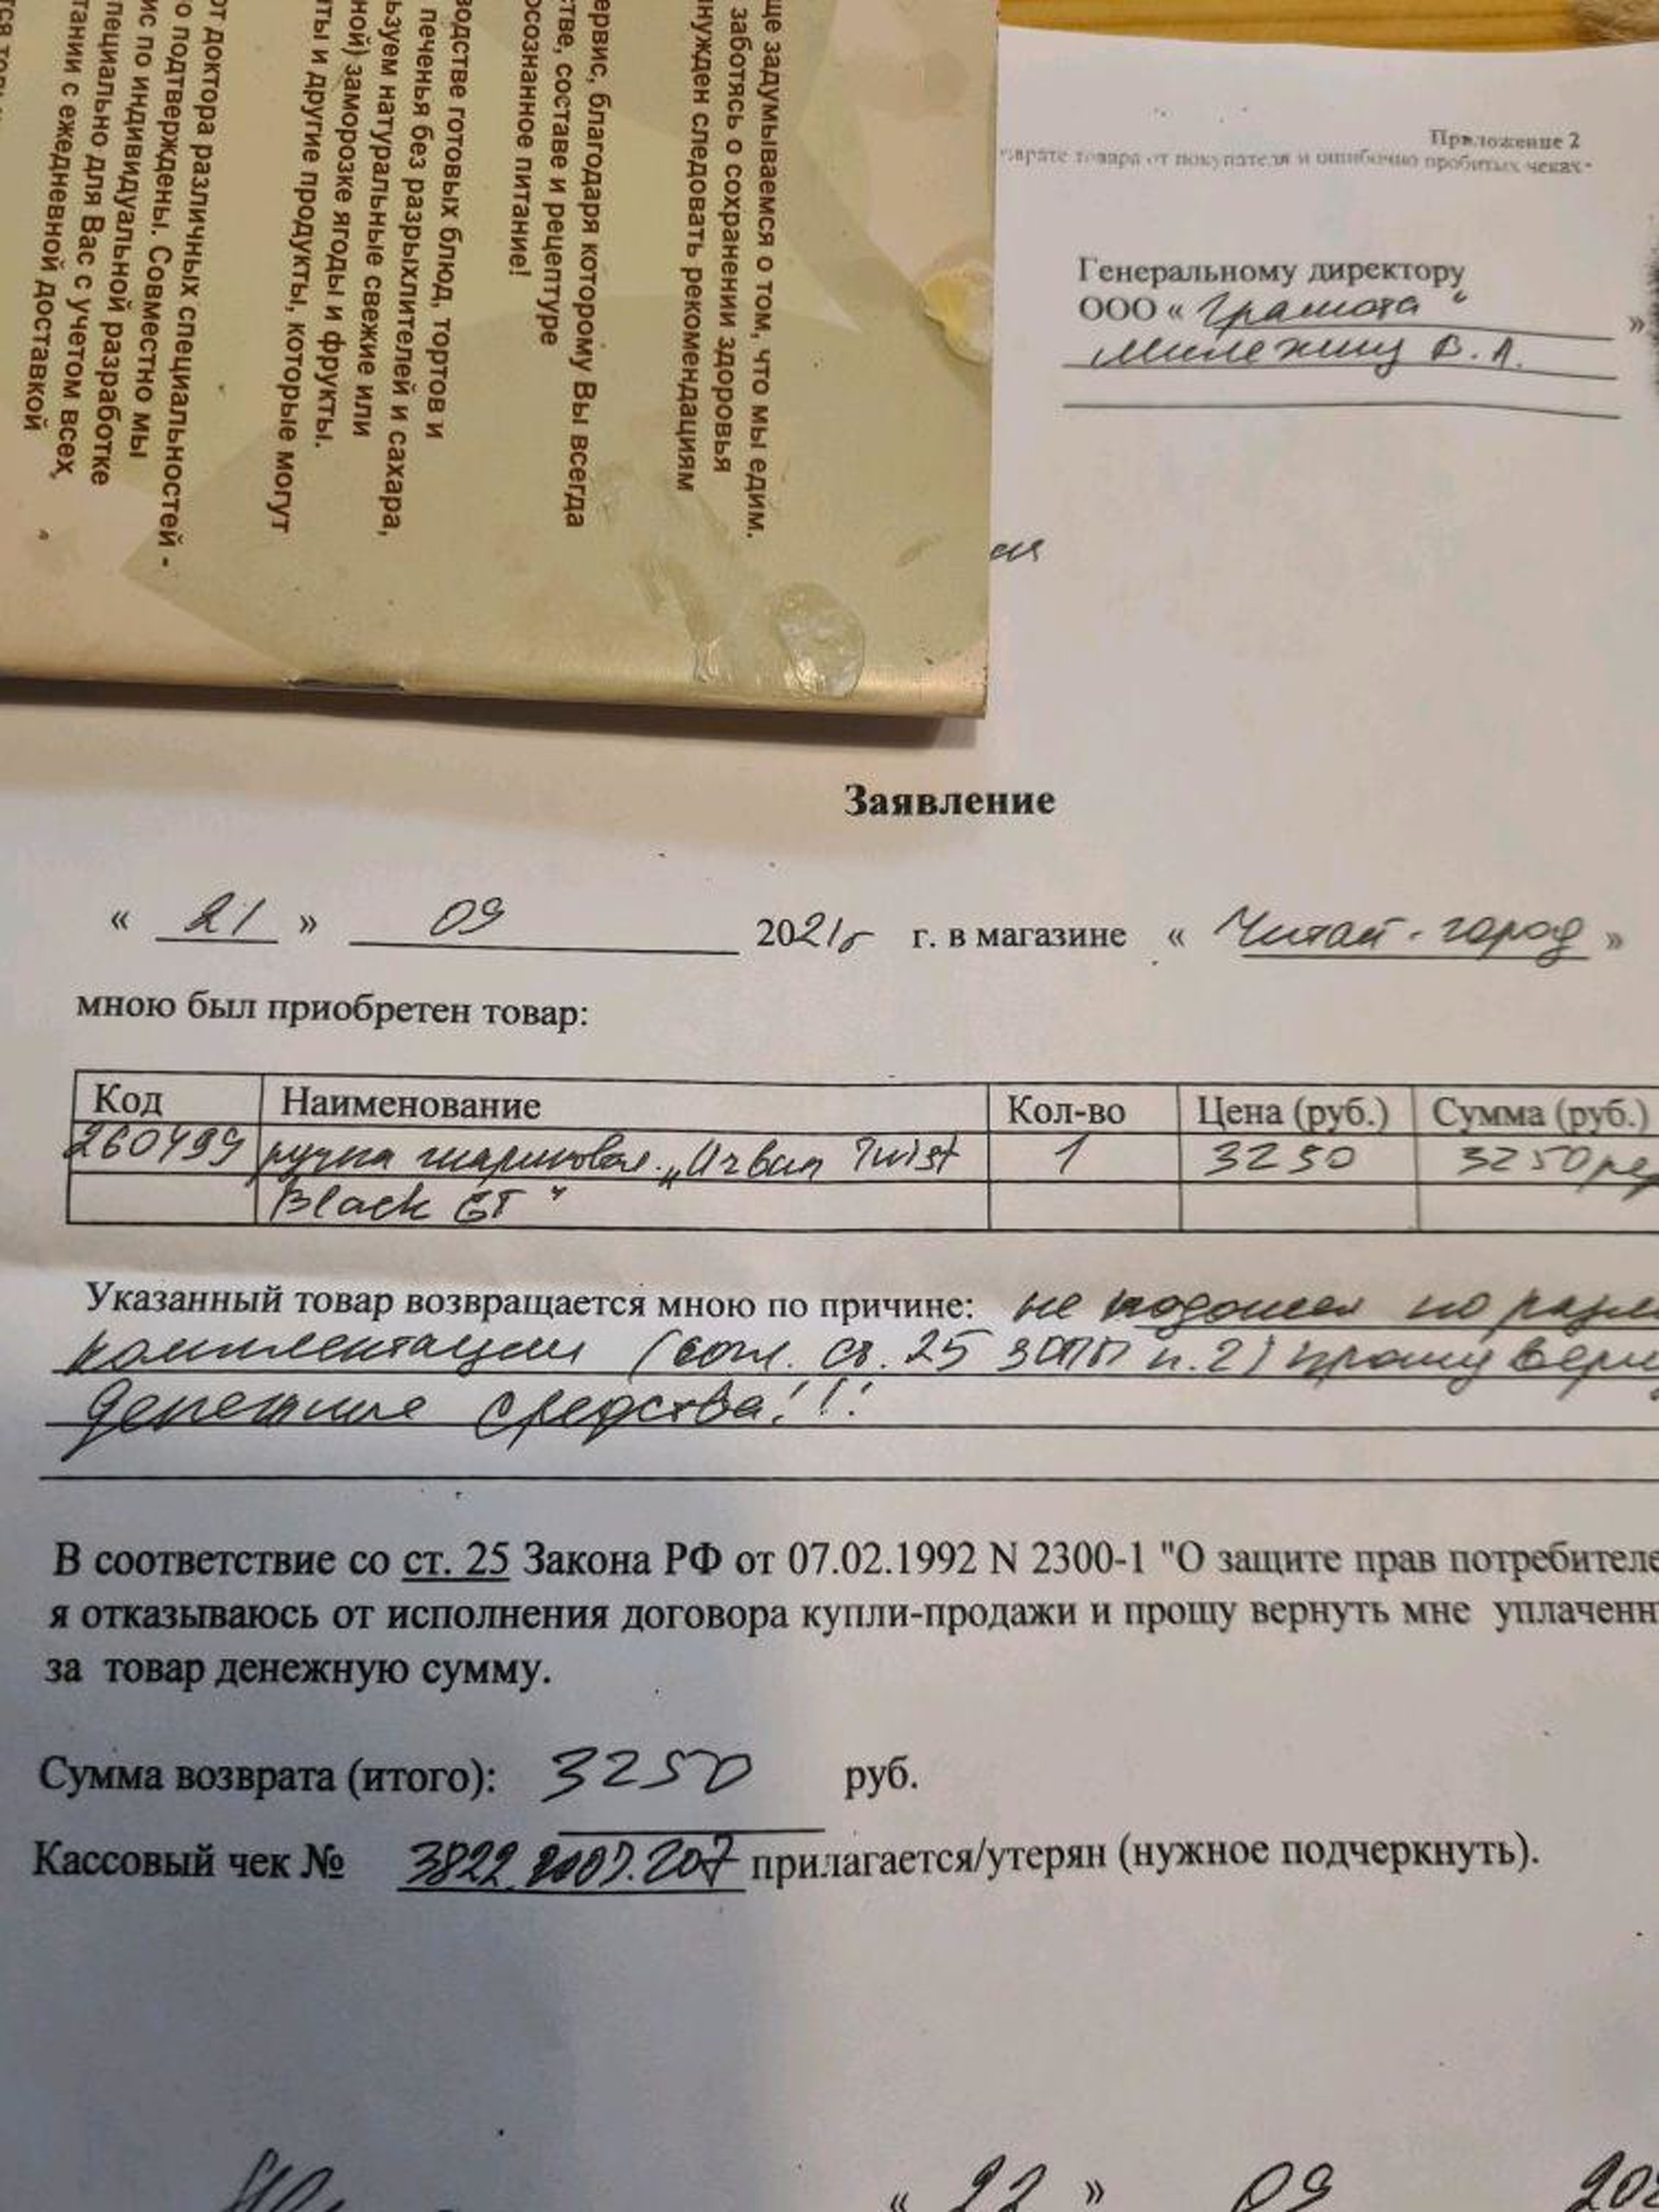 Приложение 2
врате товара от покупателя и ошибочно пробитых чеках"
Генеральному директору
ООО « Грамота " »
В. А.
ще задумываемся о том, что мы едим.
заботясь о сохранении здоровья
нужден следовать рекомендациям
ервис, благодаря которому Вы всегда
стве, составе и рецептуре
осознанное питание!
водстве готовых блюд, тортов и
печенья без разрыхлителей и сахара,
ьзуем натуральные свежие или
ной) заморозке ягоды и фрукты.
ты и другие продукты, которые могут
от доктора различных специальностей -
о подтверждены. Совместно мы
ис по индивидуальной разработке
пециально для Вас с учетом всех
тании с ежедневной доставкой
Заявление
« 21 » 09 2021г г. в магазине « Читай-город »
мною был приобретен товар:
Код Наименование Кол-во Цена (руб.) Сумма (руб.)
260499 ручка шариковая „Urban Twist 1 3250 3250
Black GT "
Указанный товар возвращается мною по причине: не подошел по разм
комплектации (согл. ст. 25 ЗОПП п.2) прошу верн
денежные средства!!!
В соответствие со ст. 25 Закона РФ от 07.02.1992 N 2300-1 "О защите прав потребителе
я отказываюсь от исполнения договора купли-продажи и прошу вернуть мне уплаченн
за товар денежную сумму.
Сумма возврата (итого): 3250 руб.
Кассовый чек № 3822 прилагается/утерян (нужное подчеркнуть).
« 22 » 09 202